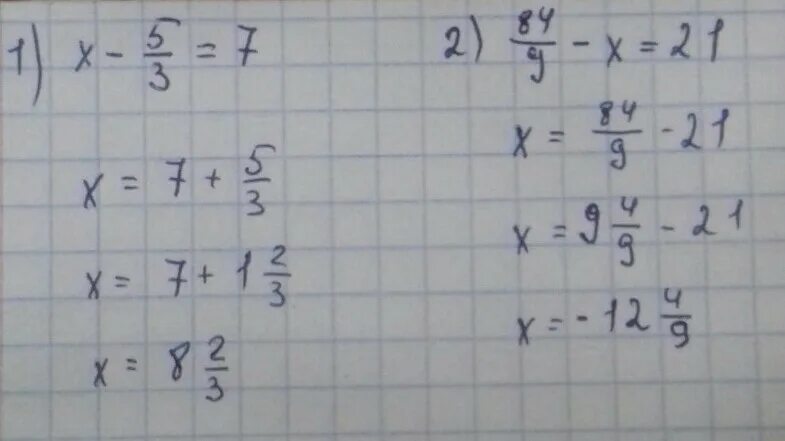 1) x - 5/3 = 7
x = 7 + 5/3
x = 7 + 1 2/3
x = 8 2/3
2) 84/9 - x = 21
x = 84/9 - 21
x = 9 4/9 - 21
x = - 12 4/9